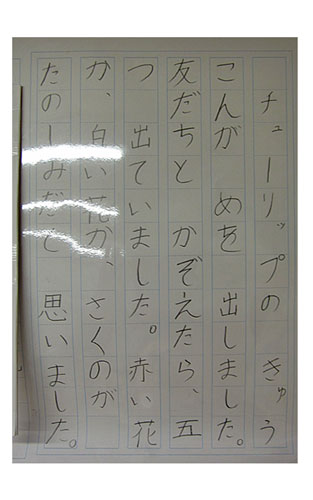 チューリップの きゅう
こんが めを 出しました。
友だちと かぞえたら、五
つ 出ていました。赤い花
か、白い花か、さくのが
たのしみだと 思いました。